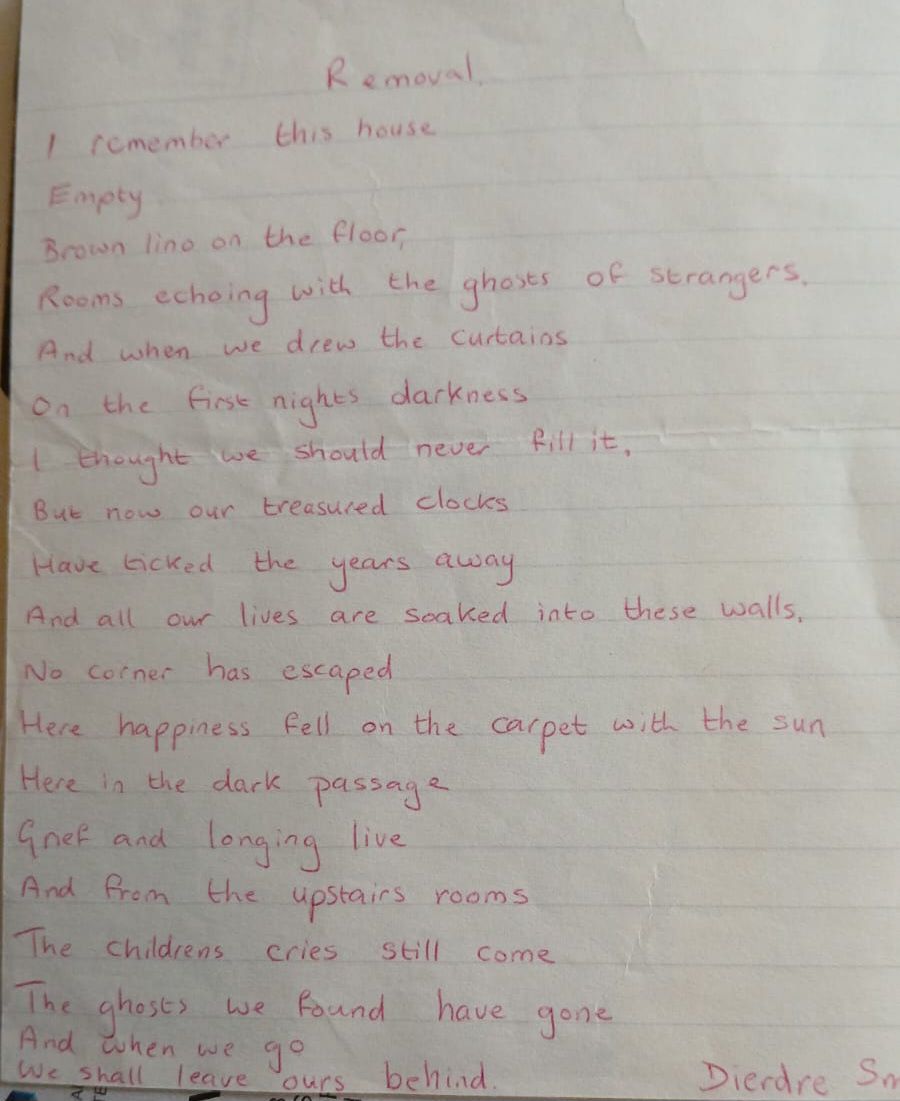 Removal.
I remember this house
Empty
Brown lino on the floor,
Rooms echoing with the ghosts of strangers.
And when we drew the curtains
On the first nights darkness
I thought we should never fill it.
But now our treasured clocks
Have ticked the years away
And all our lives are soaked into these walls.
No corner has escaped
Here happiness fell on the carpet with the sun
Here in the dark passage
Grief and longing live
And from the upstairs rooms
The childrens cries still come
The ghosts we found have gone
And when we go
We shall leave ours behind.
Dierdre